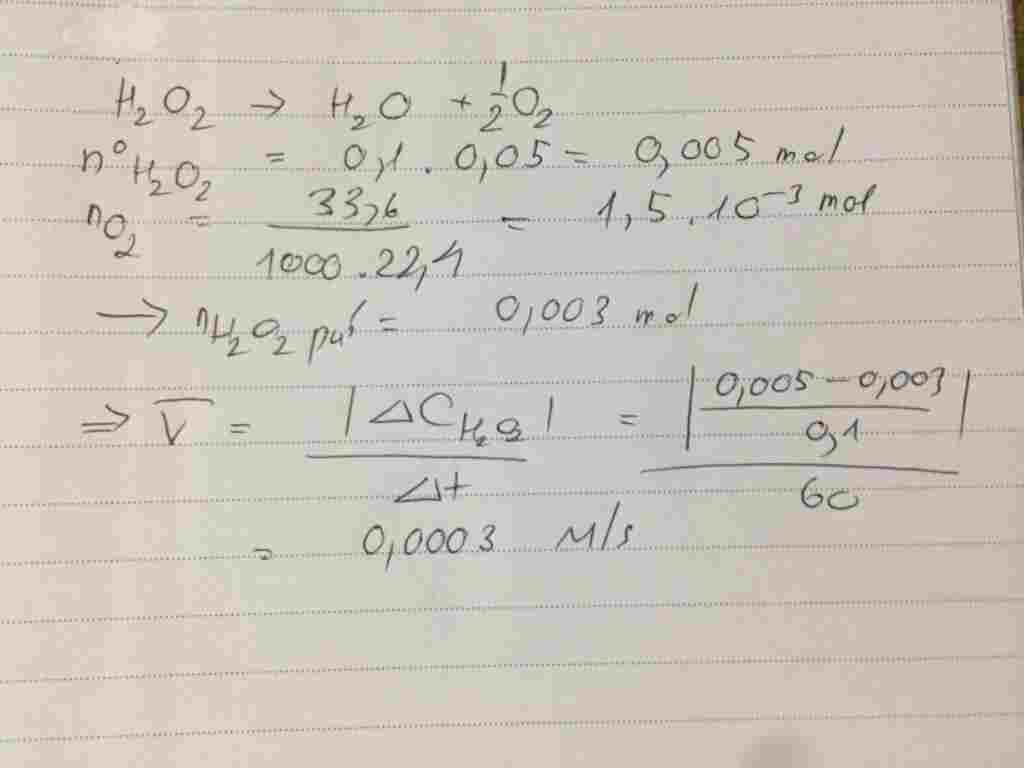 H₂O₂ → H₂O + 1/2 O₂
n°H₂O₂ = 0,1 . 0,05 = 0,005 mol
nO₂ = 33,6 / 1000.22,4 = 1,5 . 10⁻³ mol
→ nH₂O₂ pứ = 0,003 mol
⇒ V̅ = |ΔC H₂O₂| / Δt = |(0,005 - 0,003) / 0,1| / 60
= 0,0003 M/s